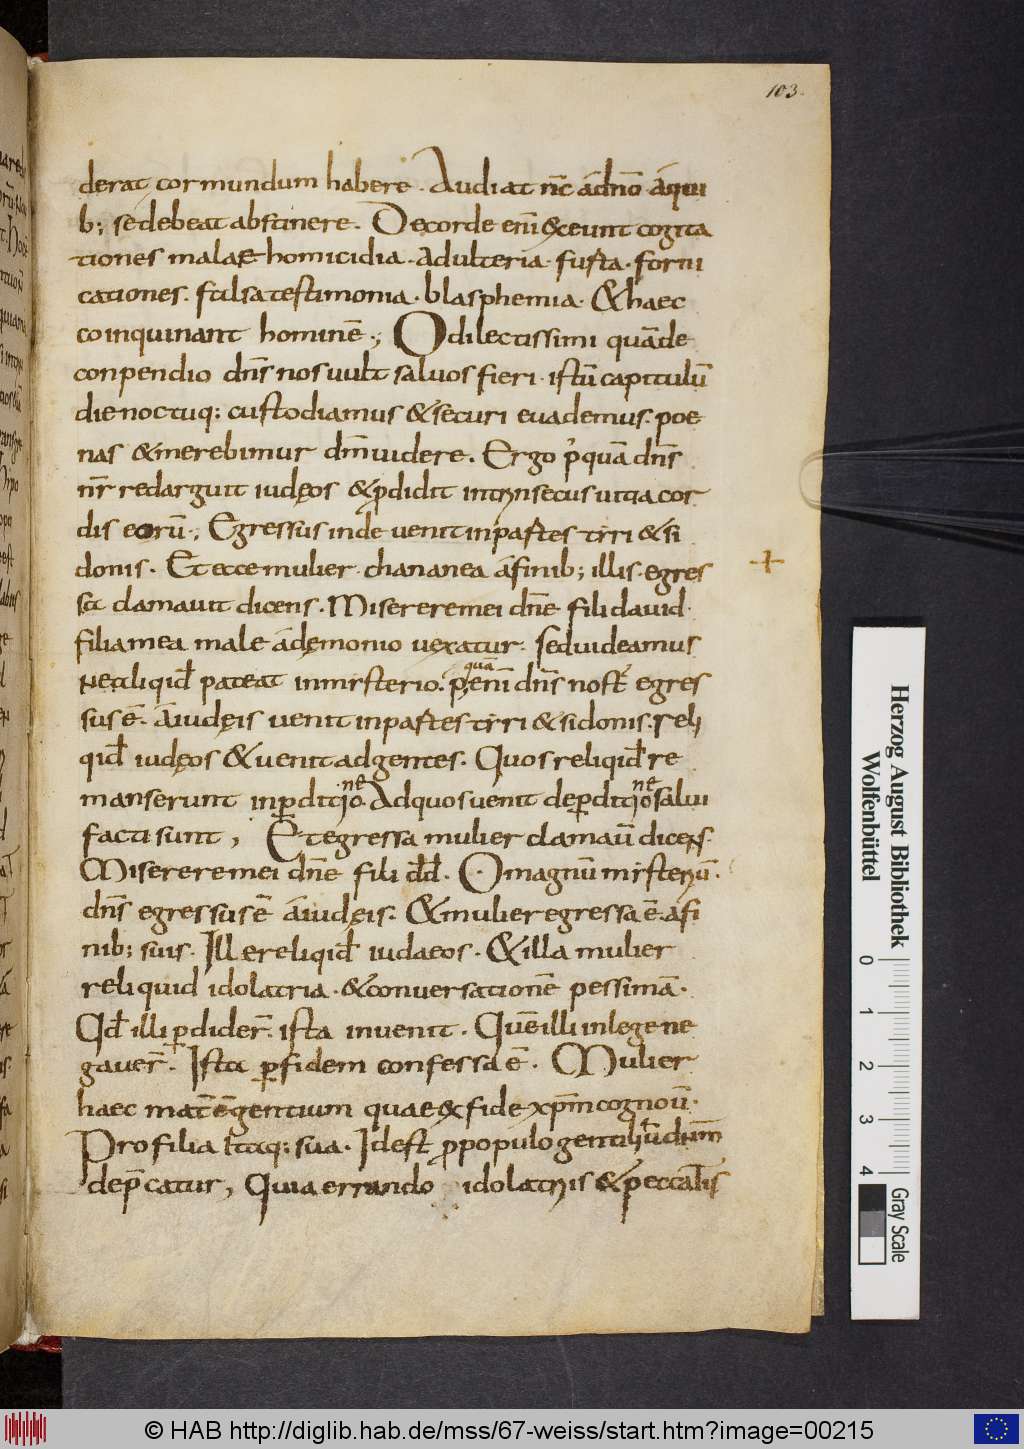 103.
derat cor mundum habere. Audiat nc̄ ād̄no āqui
b; se debeat abstinere. De corde eni̅ exeunt cogita
tiones malae homicidia. Adulteria. furta. forni
cationes. falsa testimonia. blasphemia. & haec
coinquinant hominē.; O dilectissimi quāde
conpendio dn̄s nos uult saluos fieri. istū capitulū
die noctuq: custodiamus & securi euademus. poe
nas & merebimur dm̄ uidere. Ergo pꝰquā dn̄s
nr̄ redarguit iudęos & ꝓdidit intrinsecus uitia cor
dis eorū.; Egressus inde uenit in partes tyri & si
donis. Et ecce mulier chananea ā finib; illis. egres
sa clamauit dicens. Miserere mei dn̄e fili dauid.
filia mea male ā demonio uexatur. sed uideamus
ne aliqid̄ pateat in misterio. p̱ quā eni̅ dn̄s nost̄ egres
sus ē. ā iudęis uenit in partes tyri & sidonis. reli
qid̄ iudęos & uenit ad gentes. Quos reliqid̄ re
manserunt in ꝑditio nē. Ad quos uenit de ꝑditio nē salui
facti sunt, Et egressa mulier clamaū dicens.
Miserere mei dn̄e fili dd̄. O magnū misteriū.
dn̄s egressus ē ā iudęis. & mulier egressa ē. a fi
nib; suis. Ille reliqid̄ iudaeos. & illa mulier
reliquid idolatria. & conuersationē pessimā.
Qd̄ illi ꝑdider̄. ista inuenit. Quē illi in lege ne
gauer̄. Ista ꝑ fidem confessa ē. Mulier
haec mat̄ ē gentium quae ex fide xp̄m cognoū.
Pro filia itaq: sua. Id est ꝓ populo gentiliū dn̄m
dep̄catur, Quia errando idolatriis & peccatis
Herzog August Bibliothek
Wolfenbüttel
0 1 2 3 4
Gray Scale
© HAB http://diglib.hab.de/mss/67-weiss/start.htm?image=00215